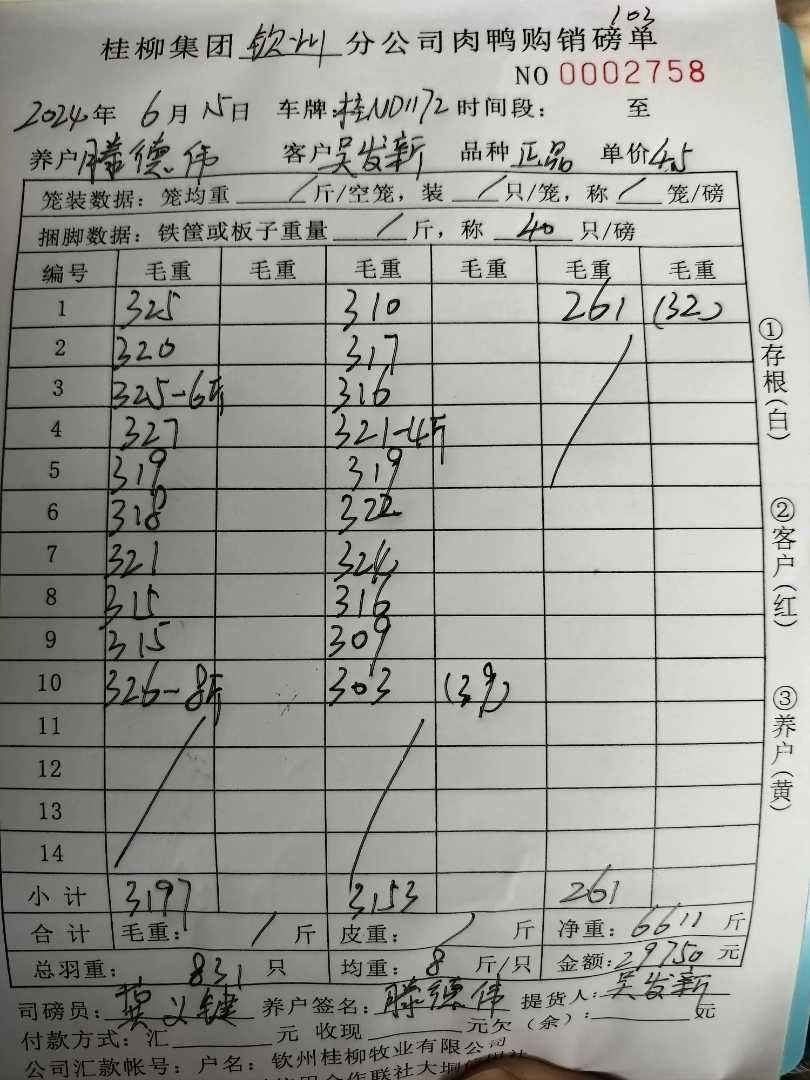 103
桂柳集团 钦州 分公司肉鸭购销磅单
NO 0002758
2024年 6月 15日 车牌:桂ND1172 时间段: 至
养户 滕德伟 客户 吴发新 品种 正品 单价 4.5
笼装数据: 笼均重 / 斤/空笼, 装 / 只/笼, 称 / 笼/磅
捆脚数据: 铁筐或板子重量 / 斤, 称 40 只/磅
编号 毛重 毛重 毛重 毛重 毛重 毛重
1 325 310 261 (32)
2 320 317
3 325-6斤 316
4 327 321-4斤
5 319 319
6 318 322
7 321 324
8 315 316
9 315 309
10 326-8斤 303 (39)
11
12
13
14
小计 3197 3153 261
合计 毛重: / 斤 皮重: / 斤 净重: 6611 斤
总羽重: 831 只 均重: 8 斤/只 金额: 29750 元
司磅员: 龚义键 养户签名: 滕德伟 提货人: 吴发新
付款方式: 汇 元 收现 元欠(余): 元
公司汇款帐号: 户名: 钦州桂柳牧业有限公司
①存根(白)
②客户(红)
③养户(黄)